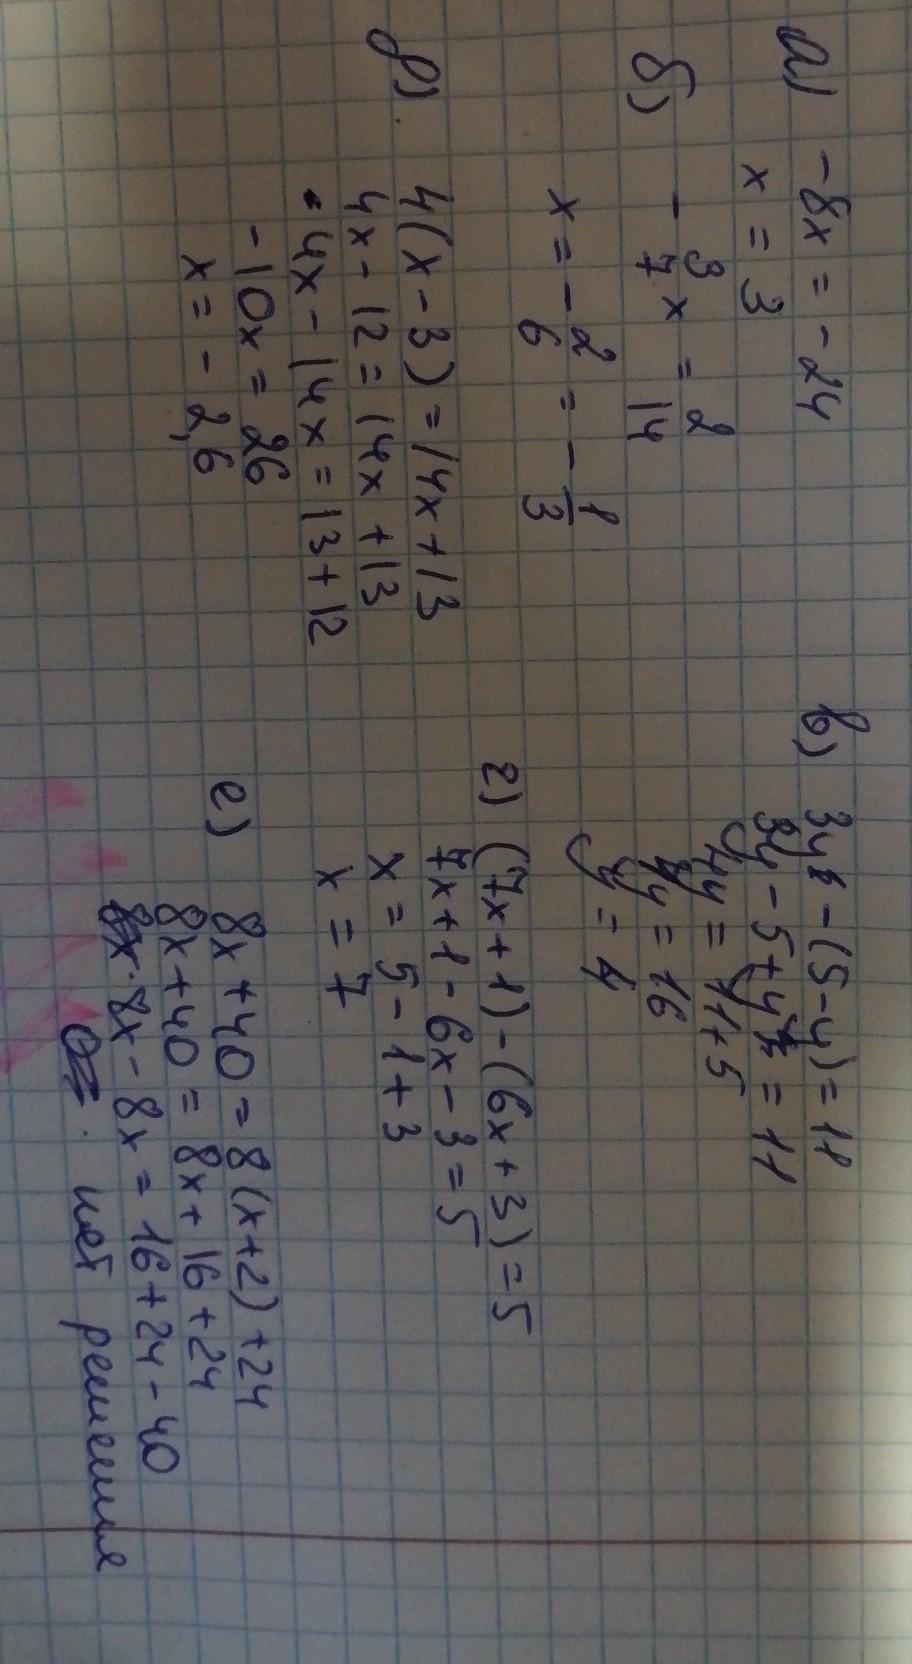 а) -8x = -24
x = 3
б) - 3/7 x = 2/14
x = - 2/6 = - 1/3
д) 4(x - 3) = 14x + 13
4x - 12 = 14x + 13
4x - 14x = 13 + 12
-10x = 26
x = - 2,6
в) 3y - (5 - y) = 11
3y - 5 + y = 11
4y = 11 + 5
4y = 16
y = 4
г) (7x + 1) - (6x + 3) = 5
7x + 1 - 6x - 3 = 5
x = 5 - 1 + 3
x = 7
е) 8x + 40 = 8(x + 2) + 24
8x + 40 = 8x + 16 + 24
8x - 8x = 16 + 24 - 40
нет решения